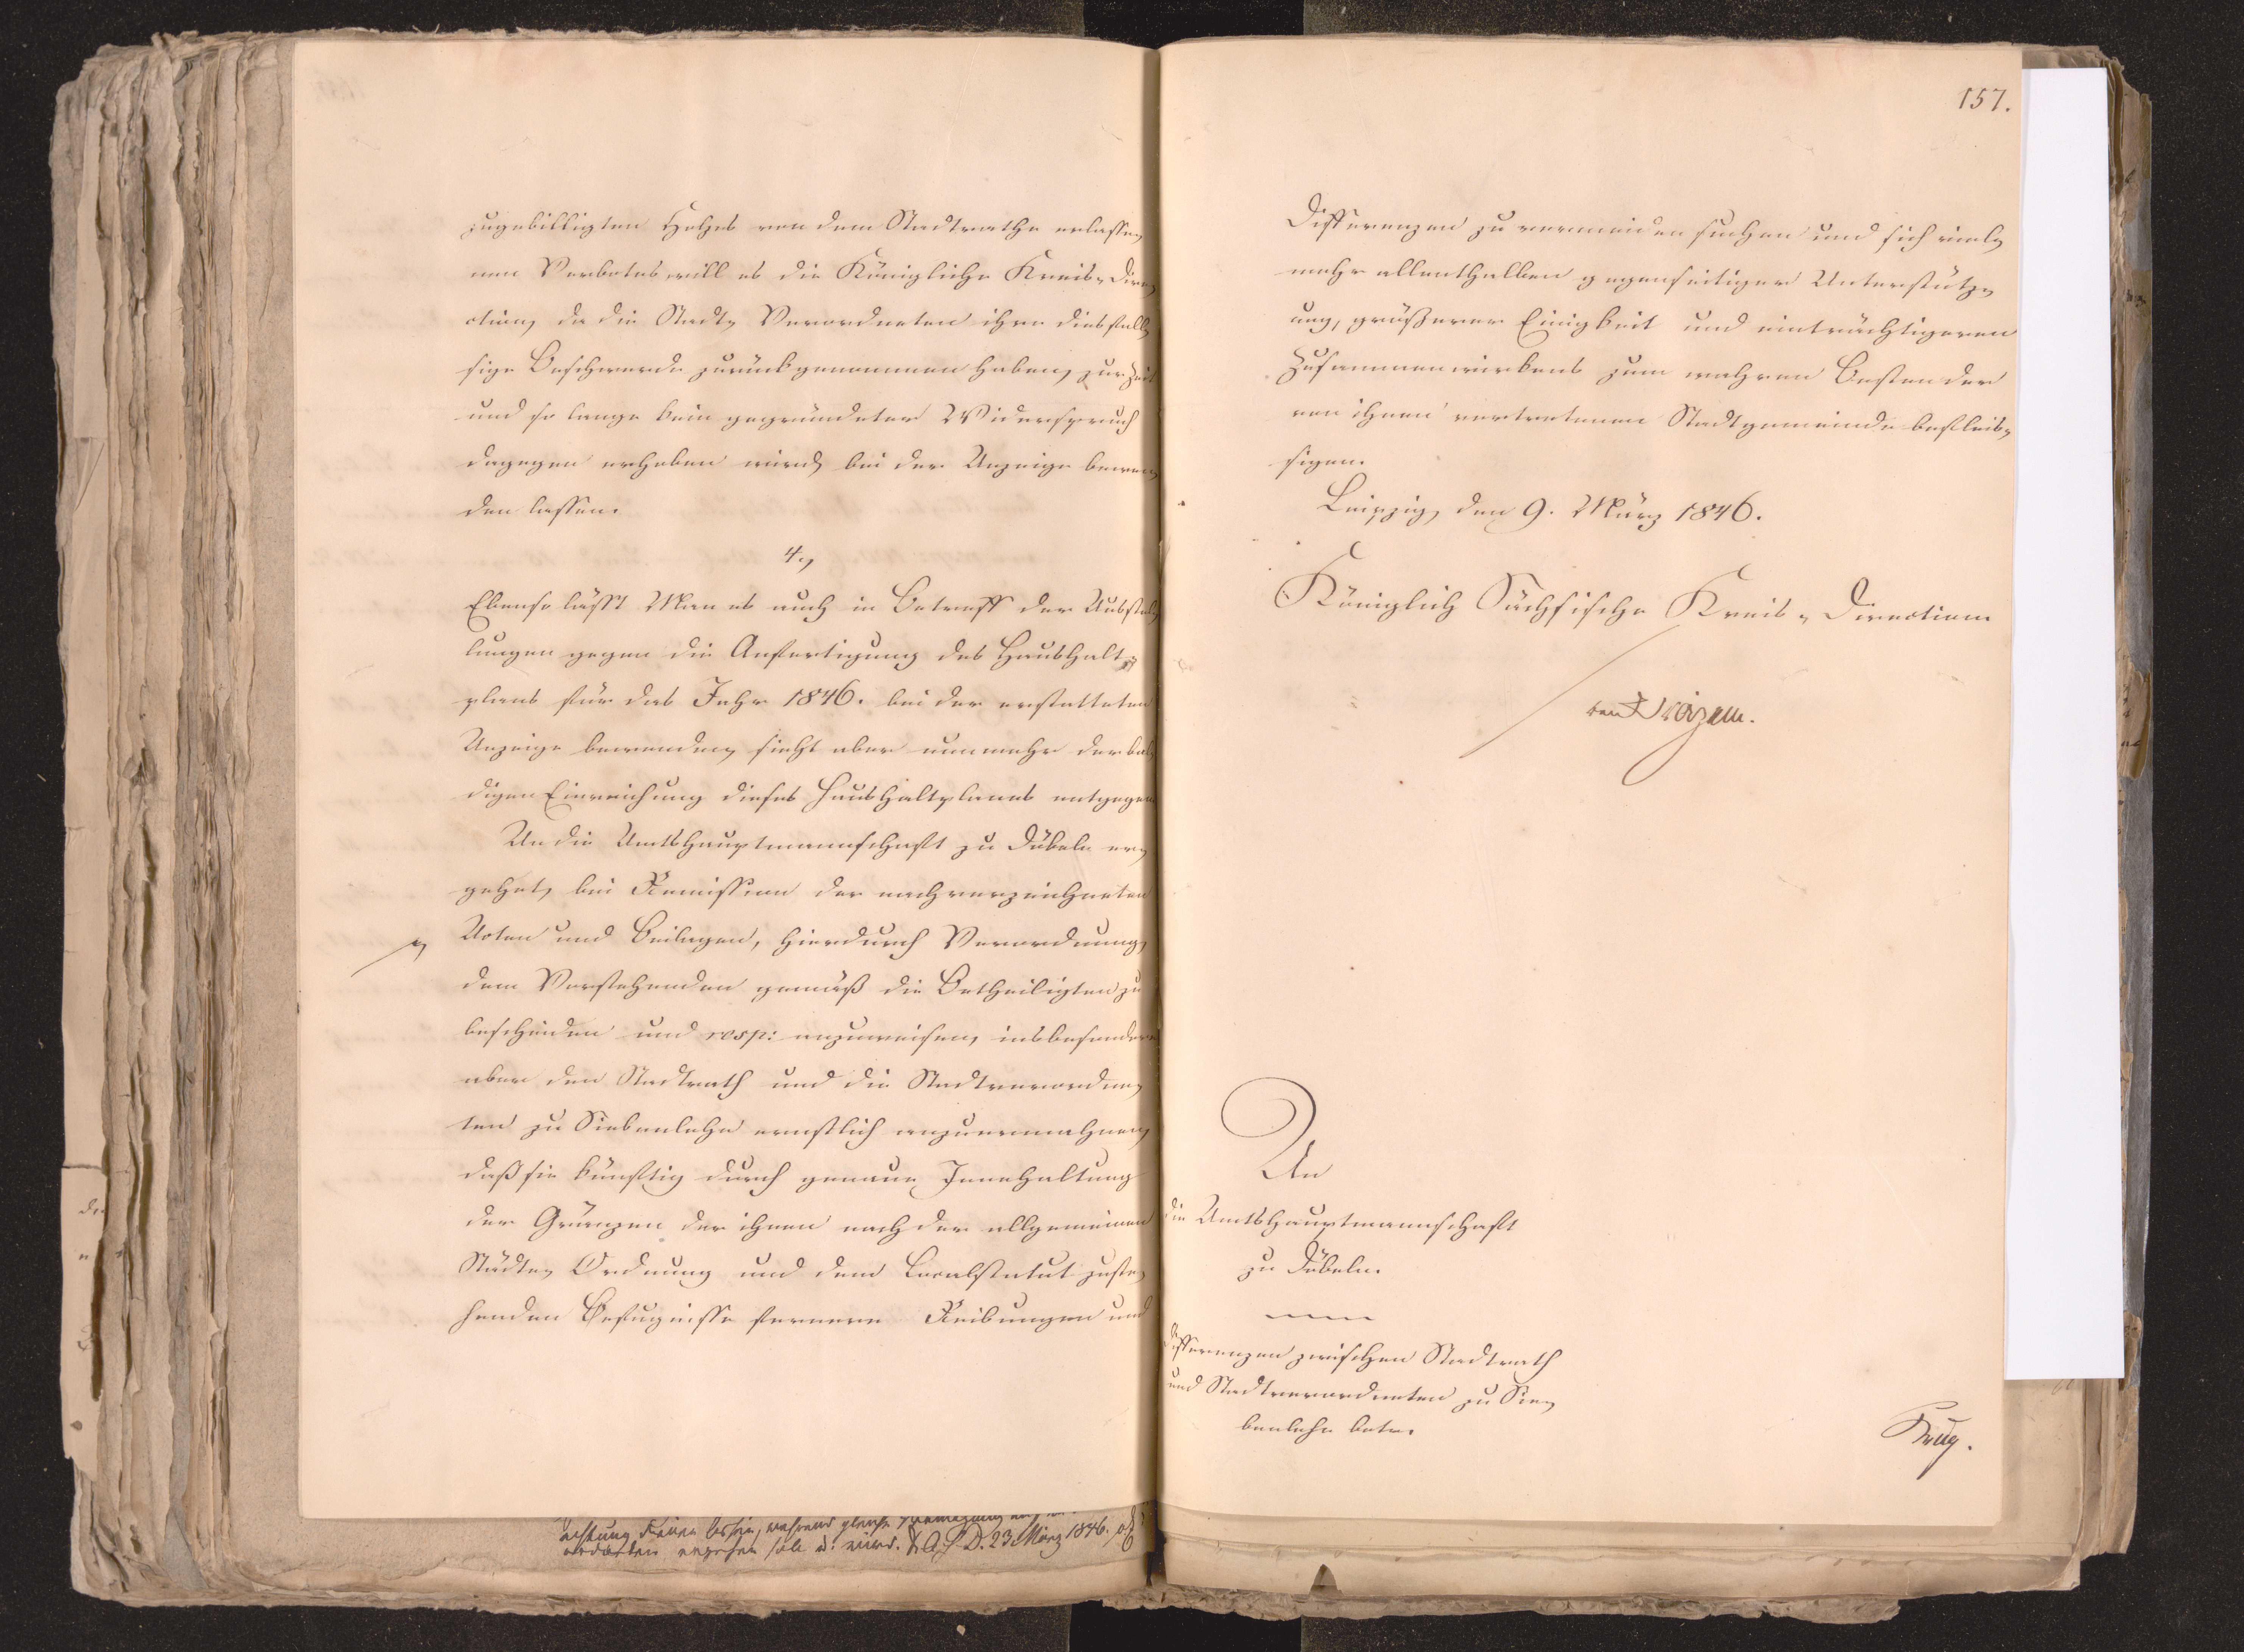 zugebilligten Holzes von dem Stadtrathe erlasse-
nen Verbotes will es die Königliche Kreis-Dire-
ction, da die Stadt-Verordneten ihre diesfall-
sige Beschwerde zurückgenommen haben, zur Zeit
und so lange kein gegründeter Widerspruch
dagegen erhoben wird, bei der Anzeige bewen-
den lassen.
4.,
Ebenso läßt Man es auch in Betreff der Ausstel-
lungen gegen die Anfertigung des Haushalt-
plans für das Jahr 1846. bei der erstatteten
Anzeige bewenden, sieht aber nunmehr der bal-
digen Einreichung dieses Haushaltplans entgegen
An die Amtshauptmannschaft zu Döbeln er-
gehet, bei Remission der nachverzeichneten
Acten und Beilagen, hierdurch Verordnung,
dem Vorstehenden gemäß die Betheiligten zu
bescheiden und resp: anzuweisen, insbesondere
aber den Stadtrath und die Stadtverordne-
ten zu Siebenlehn ernstlich anzuermahnen,
daß sie künftig durch genaue Innehaltung
der Gränzen der ihnen nach der allgemeinen
Städte-Ordnung und dem Localstatut zuste-
henden Befugnisse fernere Reibungen und
23 März 1846.
157.
Differenzen zu vermeiden suchen und sich viel-
mehr allenthalben gegenseitiger Unterstütz-
ung, größerer Einigkeit und einträchtigeren
Zusammenwirkens zum wahren Besten der
von ihnen vertretenen Stadtgemeinde befleis-
sigen.
Leipzig, den 9. März 1846.
Königlich Sächsische Kreis-Direction
von Broizem.
An
die Amtshauptmannschaft
zu Döbeln.
Differenzen zwischen Stadtrath
und Stadtverordneten zu Sie-
benlehn betr.
Krug.